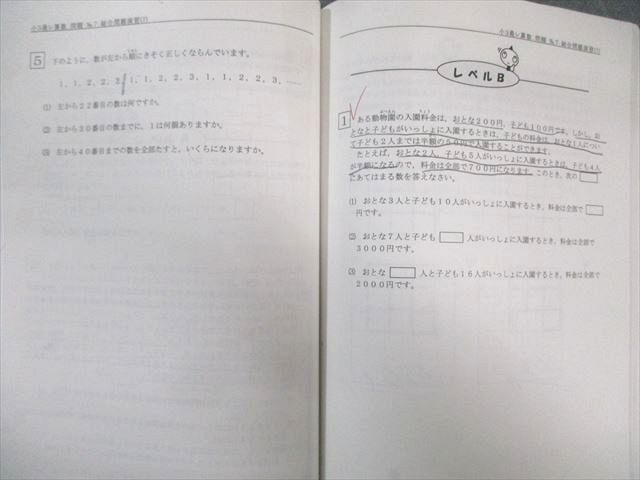 小3最レ算数 問題 №7 総合問題演習(1)
5 下のように，数が左から順にきそく正しくならんでいます。
じゅん
1，1，2，2，3，1，1，2，2，3，1，1，2，2，3，……
(1) 左から22番目の数は何ですか。
(2) 左から30番目の数までに，1は何個ありますか。
(3) 左から40番目までの数を全部たすと，いくらになりますか。
小3最レ算数 問題 №7 総合問題演習(1)
レベルB
1 ある動物園の入園料金は，おとな200円，子ども100円です。しかし，お
となと子どもがいっしょに入園するときは，子どもの料金は，おとな1人につい
て子ども2人までは半額の50円で入園することができます。
たとえば，おとな2人，子ども5人がいっしょに入園するときは，子ども4人
が半額になるので，料金は全部で700円になります。このとき，次の
にあてはまる数を答えなさい。
(1) おとな3人と子ども10人がいっしょに入園するとき，料金は全部で
円です。
(2) おとな7人と子ども 人がいっしょに入園するとき，料金は全部で
3000円です。
(3) おとな 人と子ども16人がいっしょに入園するとき，料金は全部で
2000円です。